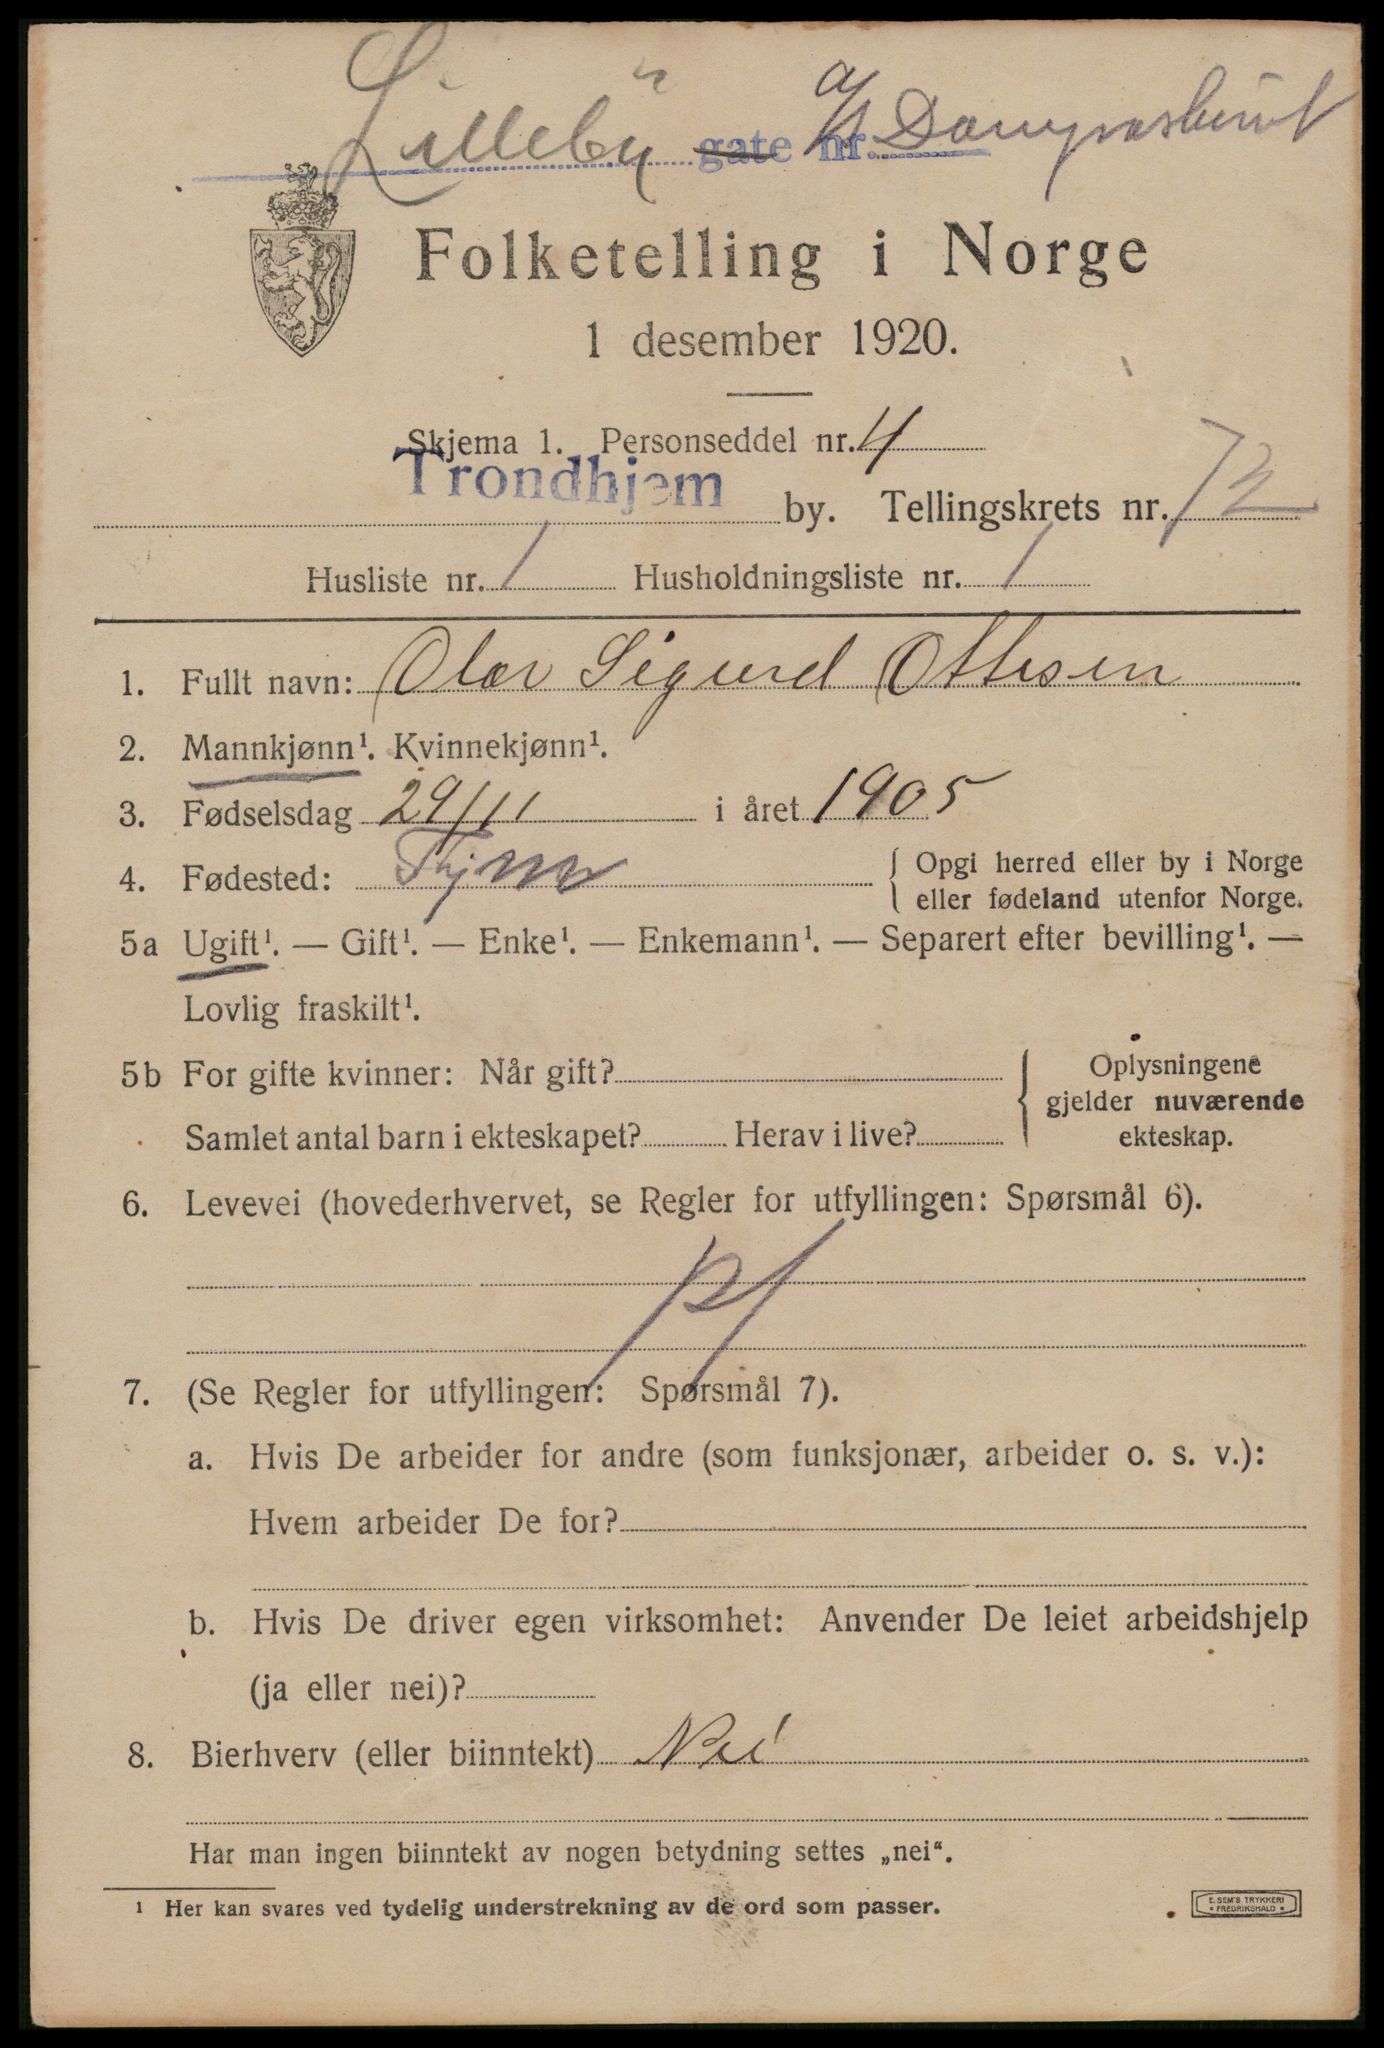 Lilleby gate nr. a/s Dampvaskeriet
Folketelling i Norge
1 desember 1920.
Skjema 1. Personseddel nr. 4
Trondhjem by. Tellingskrets nr. 72
Husliste nr. 1 Husholdningsliste nr. 1
1. Fullt navn: Olav Sigurd Ottesen
2. Mannkjønn¹. Kvinnekjønn¹.
3. Fødselsdag 29/11 i året 1905
4. Fødested: Thjem { Opgi herred eller by i Norge
eller fødeland utenfor Norge.
5a Ugift¹. — Gift¹. — Enke¹. — Enkemann¹. — Separert efter bevilling¹. —
Lovlig fraskilt¹.
5b For gifte kvinner: Når gift? { Oplysningene
gjelder nuværende
Samlet antal barn i ekteskapet? Herav i live? ekteskap.
6. Levevei (hovederhvervet, se Regler for utfyllingen: Spørsmål 6).
7. (Se Regler for utfyllingen: Spørsmål 7).
a. Hvis De arbeider for andre (som funksjonær, arbeider o. s. v.):
Hvem arbeider De for?
b. Hvis De driver egen virksomhet: Anvender De leiet arbeidshjelp
(ja eller nei)?
8. Bierhverv (eller biinntekt) Nei
Har man ingen biinntekt av nogen betydning settes „nei“.
¹ Her kan svares ved tydelig understrekning av de ord som passer.
E. SEM'S TRYKKERI
* FREDRIKSHALD *